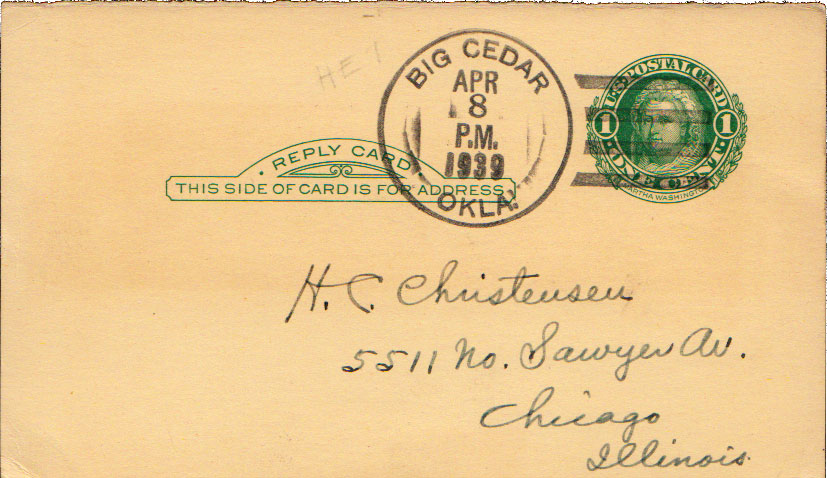 HE 1
BIG CEDAR
APR
8
P.M.
1939
OKLA.
U.S. POSTAL CARD
1 1
ONE CENT
MARTHA WASHINGTON
· REPLY CARD ·
THIS SIDE OF CARD IS FOR ADDRESS
H. C. Christensen
5511 No. Sawyer Av.
Chicago
Illinois